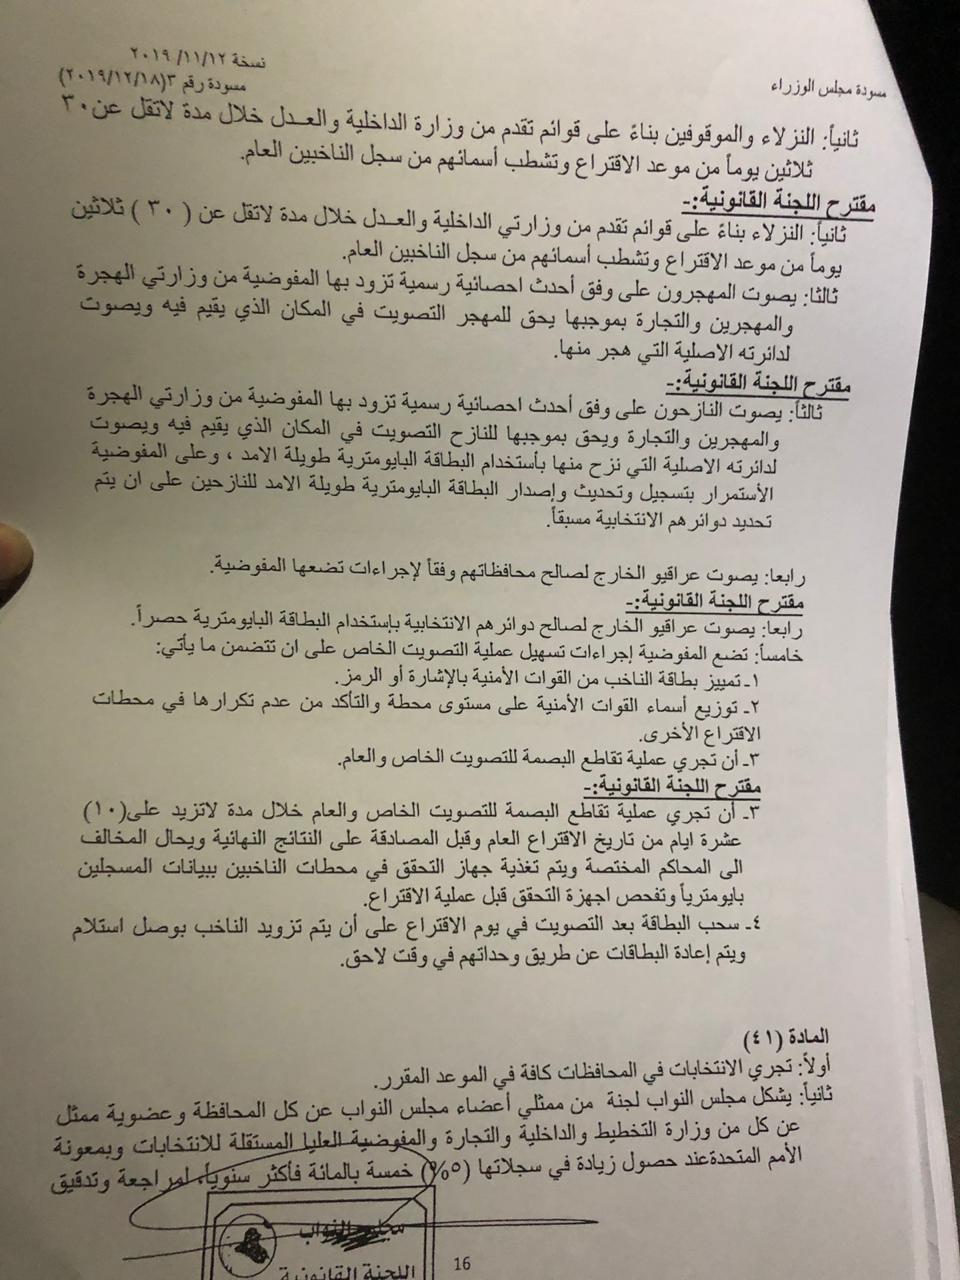 نسخة ٢٠١٩/١١/١٢
مسودة مجلس الوزراء
مسودة رقم ٣(٢٠١٩/١٢/١٨)
ثانياً: النزلاء والموقوفين بناءً على قوائم تقدم من وزارة الداخلية والعـدل خلال مدة لاتقل عن٣٠
ثلاثين يوماً من موعد الاقتراع وتشطب أسمائهم من سجل الناخبين العام.
مقترح اللجنة القانونية:-
ثانياً: النزلاء بناءً على قوائم تقدم من وزارتي الداخلية والعـدل خلال مدة لاتقل عن ( ٣٠ ) ثلاثين
يوماً من موعد الاقتراع وتشطب أسمائهم من سجل الناخبين العام.
ثالثا: يصوت المهجرون على وفق أحدث احصائية رسمية تزود بها المفوضية من وزارتي الهجرة
والمهجرين والتجارة بموجبها يحق للمهجر التصويت في المكان الذي يقيم فيه ويصوت
لدائرته الاصلية التي هجر منها.
مقترح اللجنة القانونية:-
ثالثاً: يصوت النازحون على وفق أحدث احصائية رسمية تزود بها المفوضية من وزارتي الهجرة
والمهجرين والتجارة ويحق بموجبها للنازح التصويت في المكان الذي يقيم فيه ويصوت
لدائرته الاصلية التي نزح منها بأستخدام البطاقة البايومترية طويلة الامد ، وعلى المفوضية
الأستمرار بتسجيل وتحديث وإصدار البطاقة البايومترية طويلة الامد للنازحين على ان يتم
تحديد دوائرهم الانتخابية مسبقاً.
رابعا: يصوت عراقيو الخارج لصالح محافظاتهم وفقاً لإجراءات تضعها المفوضية.
مقترح اللجنة القانونية:-
رابعا: يصوت عراقيو الخارج لصالح دوائرهم الانتخابية بإستخدام البطاقة البايومترية حصراً.
خامساً: تضع المفوضية إجراءات تسهيل عملية التصويت الخاص على ان تتضمن ما يأتي:
١ـ تمييز بطاقة الناخب من القوات الأمنية بالإشارة أو الرمز.
٢ـ توزيع أسماء القوات الأمنية على مستوى محطة والتأكد من عدم تكرارها في محطات
الاقتراع الأخرى.
٣ـ أن تجري عملية تقاطع البصمة للتصويت الخاص والعام.
مقترح اللجنة القانونية:-
٣ـ أن تجري عملية تقاطع البصمة للتصويت الخاص والعام خلال مدة لاتزيد على(١٠)
عشرة ايام من تاريخ الاقتراع العام وقبل المصادقة على النتائج النهائية ويحال المخالف
الى المحاكم المختصة ويتم تغذية جهاز التحقق في محطات الناخبين ببيانات المسجلين
بايومترياً وتفحص اجهزة التحقق قبل عملية الاقتراع.
٤ـ سحب البطاقة بعد التصويت في يوم الاقتراع على أن يتم تزويد الناخب بوصل استلام
ويتم إعادة البطاقات عن طريق وحداتهم في وقت لاحق.
المادة (٤١)
أولاً: تجري الانتخابات في المحافظات كافة في الموعد المقرر.
ثانياً: يشكل مجلس النواب لجنة من ممثلي أعضاء مجلس النواب عن كل المحافظة وعضوية ممثل
عن كل من وزارة التخطيط والداخلية والتجارة والمفوضية العليا المستقلة للانتخابات وبمعونة
الأمم المتحدةعند حصول زيادة في سجلاتها (٥%) خمسة بالمائة فأكثر سنوياً، لمراجعة وتدقيق
مجلس النواب
اللجنة القانونية
16